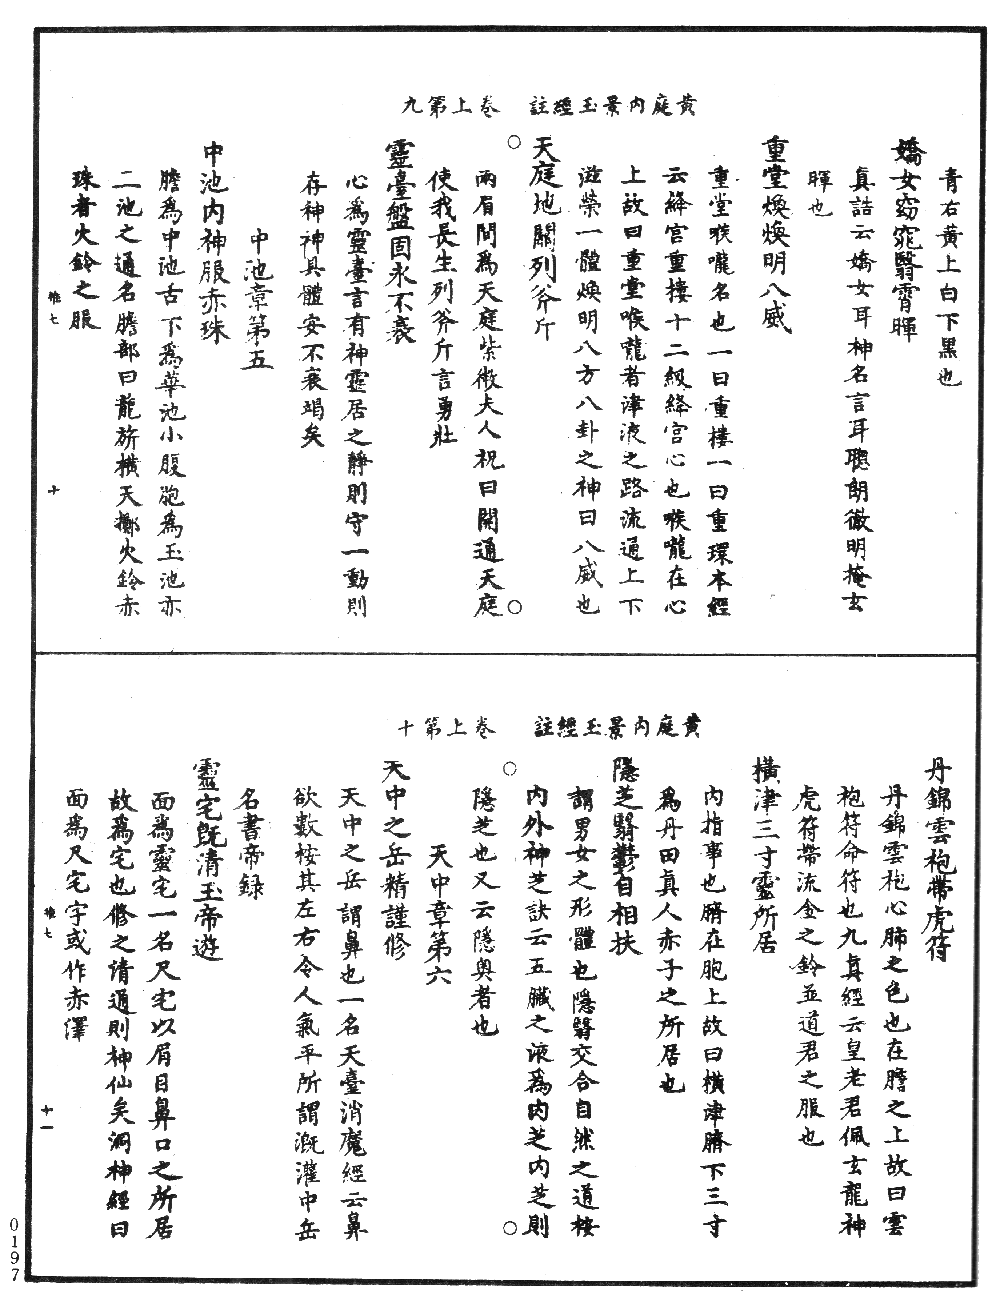 黃庭內景玉經註　卷上第九
青右黃上白下黑也
嬌女窈窕翳霄暉
真誥云嬌女耳神名言耳聰朗徹明掩玄
暉也
重堂煥煥明八威
重堂喉嚨名也一曰重樓一曰重環本經
云絳宮重樓十二級絳宮心也喉嚨在心
上故曰重堂喉嚨者津液之路流通上下
滋榮一體煥明八方八卦之神曰八威也
天庭地關列斧斤
兩眉間為天庭紫微夫人祝曰開通天庭
使我長生列斧斤言勇壯
靈臺盤固永不衰
心為靈臺言有神靈居之靜則守一動則
存神神具體安不衰竭矣
中池章第五
中池內神服赤珠
膽為中池舌下為華池小腹胞為玉池亦
二池之通名膽部曰龍旂橫天擲火鈴赤
珠者火鈴之服
惟七　十
黃庭內景玉經註　卷上第十
丹錦雲袍帶虎符
丹錦雲袍心肺之色也在膽之上故曰雲
袍符命符也九真經云皇老君佩玄龍神
虎符帶流金之鈴並道君之服也
橫津三寸靈所居
內指事也臍在胞上故曰橫津臍下三寸
為丹田真人赤子之所居也
隱芝翳鬱自相扶
謂男女之形體也隱翳交合自然之道按
內外神芝訣云五臟之液為內芝內芝則
隱芝也又云隱奧者也
天中章第六
天中之岳精謹修
天中之岳謂鼻也一名天臺消魔經云鼻
欲數按其左右令人氣平所謂溉灌中岳
名書帝錄
靈宅既清玉帝遊
面為靈宅一名尺宅以眉目鼻口之所居
故為宅也修之清通則神仙矣洞神經曰
面為尺宅字或作赤澤
惟七　十一
0197